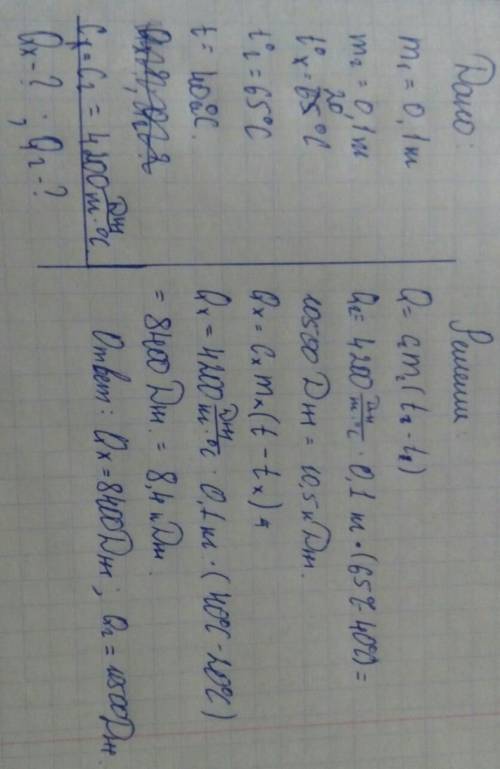 Дано:
m₁ = 0,1 кг
m₂ = 0,1 кг
t°ₓ = 20 °C
t°₂ = 65°C
t = 40°C.
Cₓ = C₂ = 4200 Дж/кг·°C
Qₓ - ?, Q₂ - ?
Решение:
Q = c₂m₂(t₂ - t₁)
Q₂ = 4200 Дж/кг·°C · 0,1 кг · (65°C - 40°C) =
10500 Дж = 10,5 кДж.
Qₓ = Cₓ mₓ (t - tₓ)
Qₓ = 4200 Дж/кг·°C · 0,1 кг · (40°C - 20°C)
= 8400 Дж. = 8,4 кДж.
Ответ: Qₓ = 8400 Дж; Q₂ = 10500 Дж.